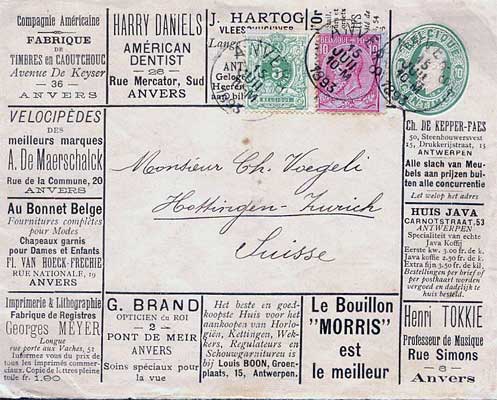 Compagnie Américaine
FABRIQUE
DE
TIMBRES en CAOUTCHOUC
Avenue De Keyser
36
ANVERS
HARRY DANIELS
AMÉRICAN
DENTIST
28
Rue Mercator, Sud
ANVERS
J. HARTOG
VLEESCHHOUWER
Lange
ANT
Geloof
Heeren
aanbil
ANVERS
15
JUIL
10-M
1893
5
BELGIQUE
BELGIQUE
10
BELGIQUE
10
10
CENTIMES
VÉLOCIPÈDES
DES
meilleurs marques
A. De Maerschalck
Rue de la Commune, 20
ANVERS
Au Bonnet Belge
Fournitures complètes
pour Modes
Chapeaux garnis
pour Dames et Enfants
FL. VAN HOECK-FRECHIE
RUE NATIONALE, 19
ANVERS
Monsieur Ch. Voegeli
Hottingen-Zurich
Suisse
Ch. DE KEPPER-FAES
50, Steenhouwersvest
15, Drukkerijstraat, 15
ANTWERPEN
Alle slach van Meubels
aan prijzen buiten
alle concurrentie
Let welop het adres
HUIS JAVA
CARNOTSTRAAT, 53
ANTWERPEN
Specialiteit van echte
Java Koffij
Eerste kw. 3.00 fr. de k.
Java koffie 2.90 fr. de k.
Extra fijn 3.50 fr. de kil.
Bestellingen per brief of
per postkaart worden
vervoed en dadelijk te
huis besteld.
Imprimerie & Lithographie
Fabrique de Registres
Georges MEYER
Longue
rue porte aux Vaches, 51
Informez vous du prix de
tous les imprimés commerciaux.
Copie de lettres pleine
toile fr. 1.90
G. BRAND
OPTICIEN du ROI
2
PONT DE MEIR
ANVERS
Soins spéciaux pour
la vue
Het beste en goedkoopste
Huis voor het
aankoopen van Horlogiën,
Kettingen, Wekkers,
Regulateurs en
Schouwgarnituren is bij
Louis BOON, Groenplaats,
15, Antwerpen.
Le Bouillon
"MORRIS"
est
le meilleur
Henri TOKKIE
Professeur de Musique
Rue Simons
8
Anvers